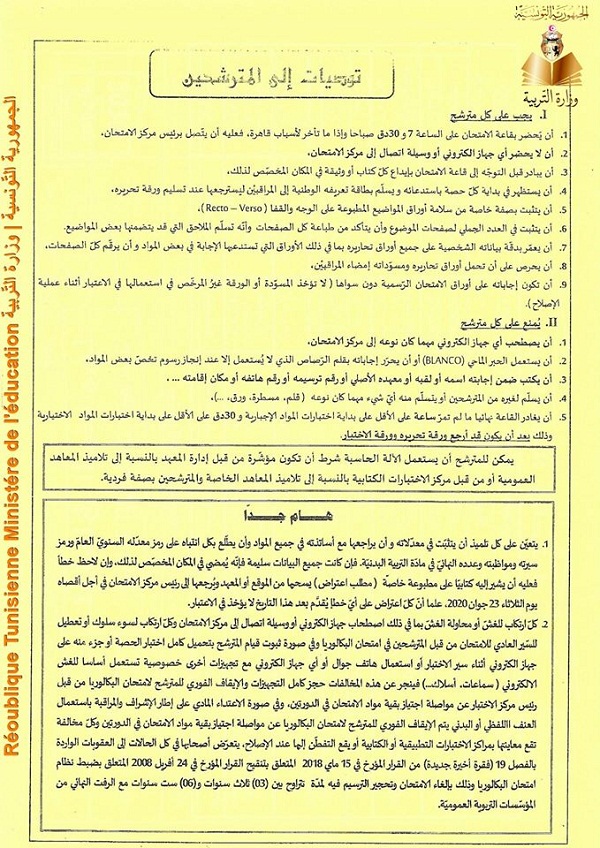 الجمهورية التونسية
وزارة التربية
توصيات إلى المترشحين
I. يجب على كل مترشح
1. أن يَحضر بقاعة الامتحان على الساعة 7 و 30دق صباحا وإذا ما تأخر لأسباب قاهرة، فعليه أن يتّصل برئيس مركز الامتحان.
2. أن لا يحضر أي جهاز الكتروني أو وسيلة اتصال إلى مركز الامتحان.
3. أن يبادر قبل التوجّه إلى قاعة الامتحان بإيداع كلّ كتاب أو وثيقة في المكان المخصّص لذلك.
4. أن يستظهر في بداية كلّ حصة باستدعائه و يسلّم بطاقة تعريفه الوطنية إلى المراقبَيْن ليسترجعها عند تسليم ورقة تحريره.
5. أن يتثبّت بصفة خاصة من سلامة أوراق المواضيع المطبوعة على الوجه والقفا ( Recto – Verso ).
6. أن يتثبّت في العدد الجملي لصفحات الموضوع وأن يتأكد من طباعة كل الصفحات وأنّه تسلّم الملاحق التي قد يتضمنها بعض المواضيع.
7. أن يعمّر بدقّة بياناته الشخصية على جميع أوراق تحاريره بما في ذلك الأوراق التي تستدعيها الإجابة في بعض المواد و أن يرقّم كلّ الصفحات.
8. أن يحرص على أن تحمل أوراق تحاريره ومسوّداته إمضاء المراقبَيْن.
9. أن تكون إجاباته على أوراق الامتحان الرّسمية دون سواها ( لا تؤخذ المسودّة أو الورقة غيرُ المرخّص في استعمالها في الاعتبار أثناء عملية
الإصلاح ).
II. يُمنع على كل مترشح
1. أن يصطحب أي جهاز الكتروني مهما كان نوعه إلى مركز الامتحان.
2. أن يستعمل الحبر الماحي (BLANCO) أو أن يحرّر إجاباته بقلم الرّصاص الذي لا يُستعمل إلا عند إنجاز رسوم تخصّ بعض المواد.
3. أن يكتب ضمن إجابته اسمه أو لقبه أو معهده الأصلي أو رقم ترسيمه أو رقم هاتفه أو مكان إقامته ... .
4. أن يسلّم لغيره من المترشحين أو يتسلّم منه أيّ شيء مهما كان نوعه ( قلم، مسطرة، ورق، ...).
5. أن يغادر القاعة نهائيا ما لم تمرّ ساعة على الأقل على بداية اختبارات المواد الإجبارية و 30دق على الأقل على بداية اختبارات المواد الاختيارية
وذلك بعد أن يكون قد أرجع ورقة تحريره وورقة الاختبار.
يمكن للمترشح أن يستعمل الآلة الحاسبة شرط أن تكون مؤشّرة من قبل إدارة المعهد بالنسبة إلى تلاميذ المعاهد
العمومية أو من قبل مركز الاختبارات الكتابية بالنسبة إلى تلاميذ المعاهد الخاصة والمترشحين بصفة فردية.
هـام جـدّا
1. يتعيّن على كل تلميذ أن يتثبّت في معدّلاته و أن يراجعها مع أساتذته في جميع المواد وأن يطّلع بكل انتباه على رمز معدّله السنويّ العامّ ورمز
سيرته ومواظبته وعدده النهائيّ في مادّة التربية البدنيّة. فإن كانت جميع البيانات سليمة فإنّه يُمضي في المكان المخصّص لذلك، وإن لاحظ خطأ
فعليه أن يشير إليه كتابيّا على مطبوعة خاصّة ( مطلب اعتراض) يسحبها من الموقع أو المعهد ويُرجعها إلى رئيس مركز الامتحان في أجل أقصاه
يوم الثلاثاء 23 جوان 2020. علما أنّ كلّ اعتراض على أيّ خطإ يُقدَّم بعد هذا التاريخ لا يؤخذ في الاعتبار.
2. كلّ ارتكاب للغشّ أو محاولة الغشّ بما في ذلك اصطحاب جهاز إلكتروني أو وسيلة اتصال إلى مركز الامتحان وكلّ ارتكاب لسوء سلوك أو تعطيل
للسّير العادي للامتحان من قبل المترشحين في امتحان البكالوريا وفي صورة ثبوت قيام المترشح بتحميل كامل اختبار الحصة أو جزء منه على
جهاز الكتروني أثناء سير الاختبار أو استعمال هاتف جوال أو أي جهاز الكتروني مع تجهيزات أخرى خصوصية تستعمل أساسا للغش
الالكتروني ( سماعات، أسلاك...) فينجر عن هذه المخالفات حجز كامل التجهيزات والإيقاف الفوري للمترشح لامتحان البكالوريا من قبل
رئيس مركز الاختبار عن مواصلة اجتياز بقية مواد الامتحان في الدورتين، وفي صورة الاعتداء المادي على إطار الإشراف والمراقبة باستعمال
العنف اللفظي أو البدني يتم الإيقاف الفوري للمترشح لامتحان البكالوريا عن مواصلة اجتياز بقية مواد الامتحان في الدورتين وكلّ مخالفة
تقع معاينتها بمراكز الاختبارات التطبيقية أو الكتابية أو يقع التفطّن إليها عند الإصلاح، يتعرّض أصحابها في كل الحالات إلى العقوبات الواردة
بالفصل 19 (فقرة أخيرة جديدة) من القرار المؤرخ في 15 ماي 2018 المتعلق بتنقيح القرار المؤرخ في 24 أفريل 2008 المتعلق بضبط نظام
امتحان البكالوريا وذلك بإلغاء الامتحان وتحجير الترسيم فيه لمدّة تتراوح بين (03) ثلاث سنوات و(06) ست سنوات مع الرفت النهائي من
المؤسّسات التربوية العموميّة.
Réoublique Tunisienne Ministére de l'éducation الجمهورية التونسية | وزارة التربية